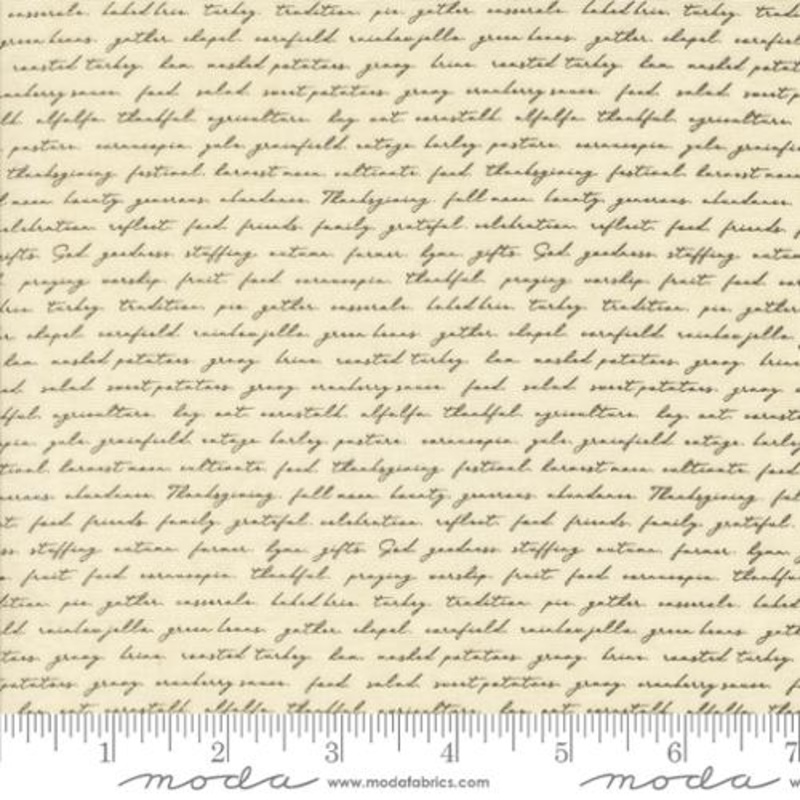 casserole. baked brie. turkey. tradition. pie. gather. casserole. baked brie. turkey.
green beans. gather. chapel. cornfield. rainbow jello. green beans. gather. chapel.
roasted turkey. ham. mashed potatoes. gravy. brine. roasted turkey. ham. mashed
sauce. food. salad. sweet potatoes. gravy. cranberry sauce. food. salad.
alfalfa. thankful. agriculture. hay. oat. cornstalk. alfalfa. thankful. agriculture.
pasture. cornucopia. yule. grainfield. cottage. barley. pasture. cornucopia. yule.
thanksgiving. festival. harvest moon. cultivate. food. thanksgiving. festival. harvest moon
moon. bounty. generous. abundance. Thanksgiving. full moon. bounty. generous. abundance.
celebration. reflect. food. friends. family. grateful. celebration. reflect. food. friends.
gifts. God. goodness. stuffing. autumn. farmer. hymn. gifts. God. goodness. stuffing.
praying. worship. fruit. food. cornucopia. thankful. praying. worship. fruit. food.
brie. turkey. tradition. pie. gather. casserole. baked brie. turkey. tradition. pie. gather
chapel. cornfield. rainbow jello. green beans. gather. chapel. cornfield. rainbow jello.
ham. mashed potatoes. gravy. brine. roasted turkey. ham. mashed potatoes. gravy. brine
salad. sweet potatoes. gravy. cranberry sauce. food. salad. sweet potatoes. gravy.
agriculture. hay. oat. cornstalk. alfalfa. thankful. agriculture. hay. oat.
yule. grainfield. cottage. barley. pasture. cornucopia. yule. grainfield. cottage. barley
harvest moon. cultivate. food. thanksgiving. festival. harvest moon. cultivate. food
abundance. Thanksgiving. full moon. bounty. generous. abundance. Thanksgiving.
food. friends. family. grateful. celebration. reflect. food. friends. family. grateful.
stuffing. autumn. farmer. hymn. gifts. God. goodness. stuffing. autumn. farmer. hymn.
fruit. food. cornucopia. thankful. praying. worship. fruit. food. cornucopia.
pie. gather. casserole. baked brie. turkey. tradition. pie. gather. casserole. baked
rainbow jello. green beans. gather. chapel. cornfield. rainbow jello. green beans.
gravy. brine. roasted turkey. ham. mashed potatoes. gravy. brine. roasted turkey.
potatoes. gravy. cranberry sauce. food. salad. sweet potatoes. gravy. cranberry sauce.
hay. oat. cornstalk. alfalfa. thankful. agriculture. hay. oat. cornstalk. alfalfa.
1 2 3 4 5 6 7
moda www.modafabrics.com moda